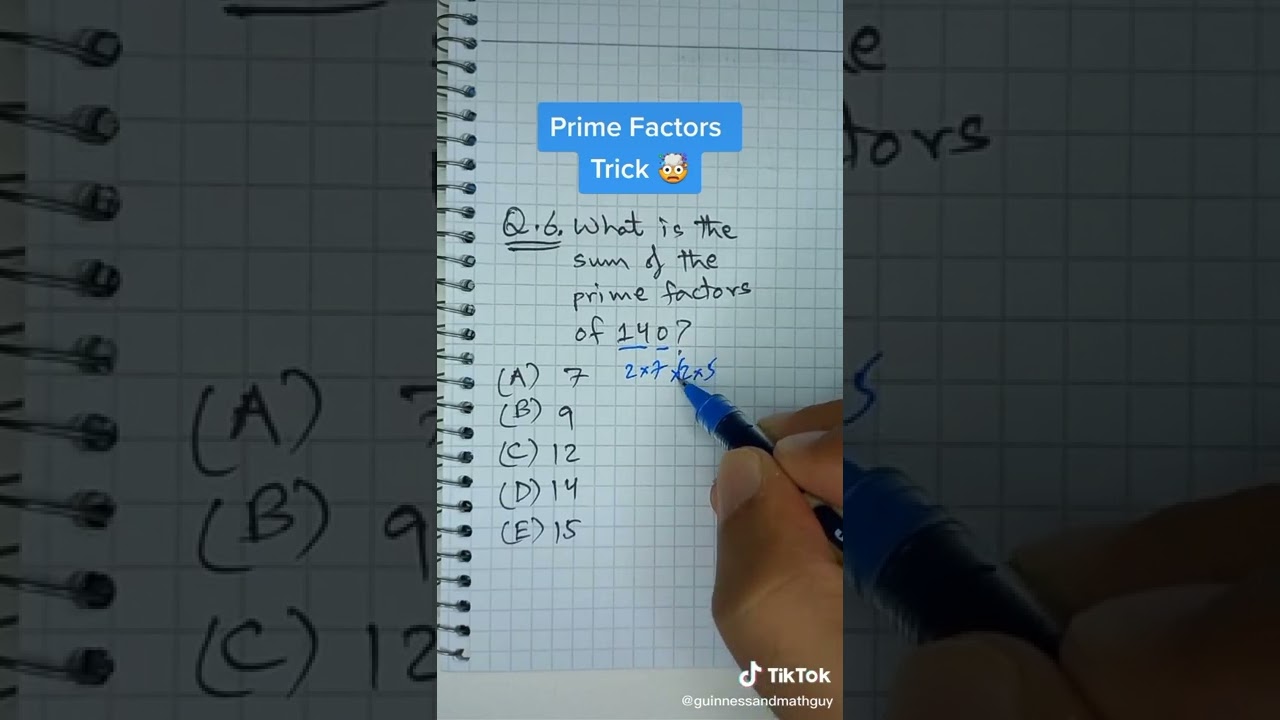 Prime Factors
Trick 🤯
Q.6. What is the
sum of the
prime factors
of 140?
2×7×2×5
(A) 7
(B) 9
(C) 12
(D) 14
(E) 15
TikTok
@guinnessandmathguy